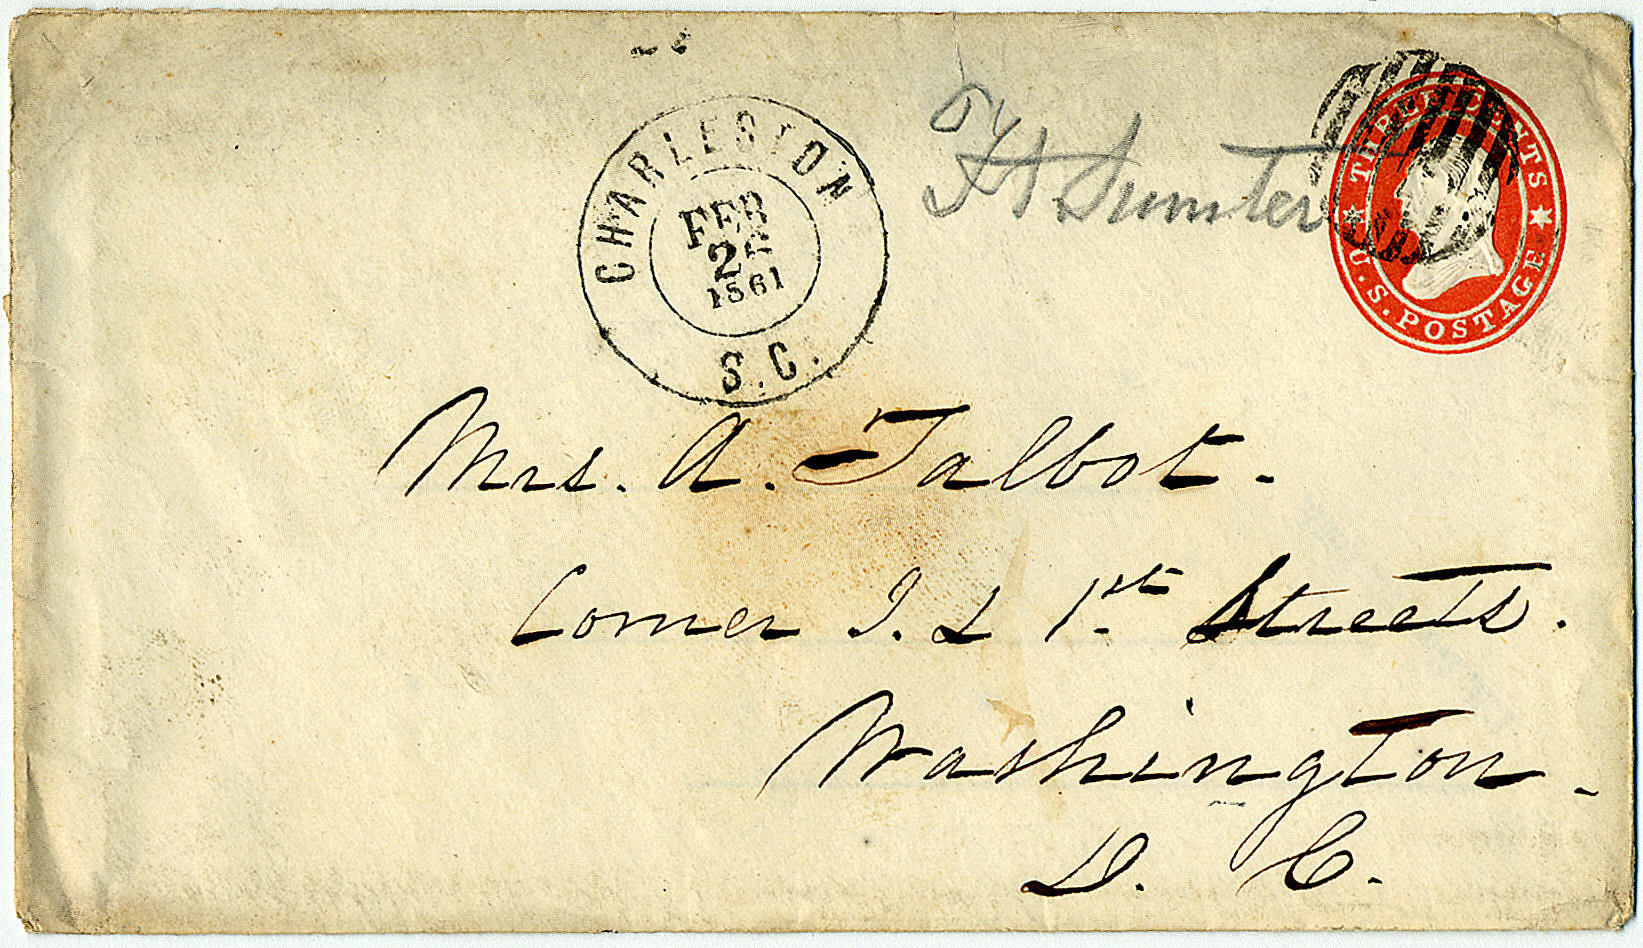 CHARLESTON
FEB
22
1861
S.C.
Ft Sumter
THREE CENTS
U.S. POSTAGE
Mrs. A. Talbot.
Corner I. & 1st Streets.
Washington.
D. C.